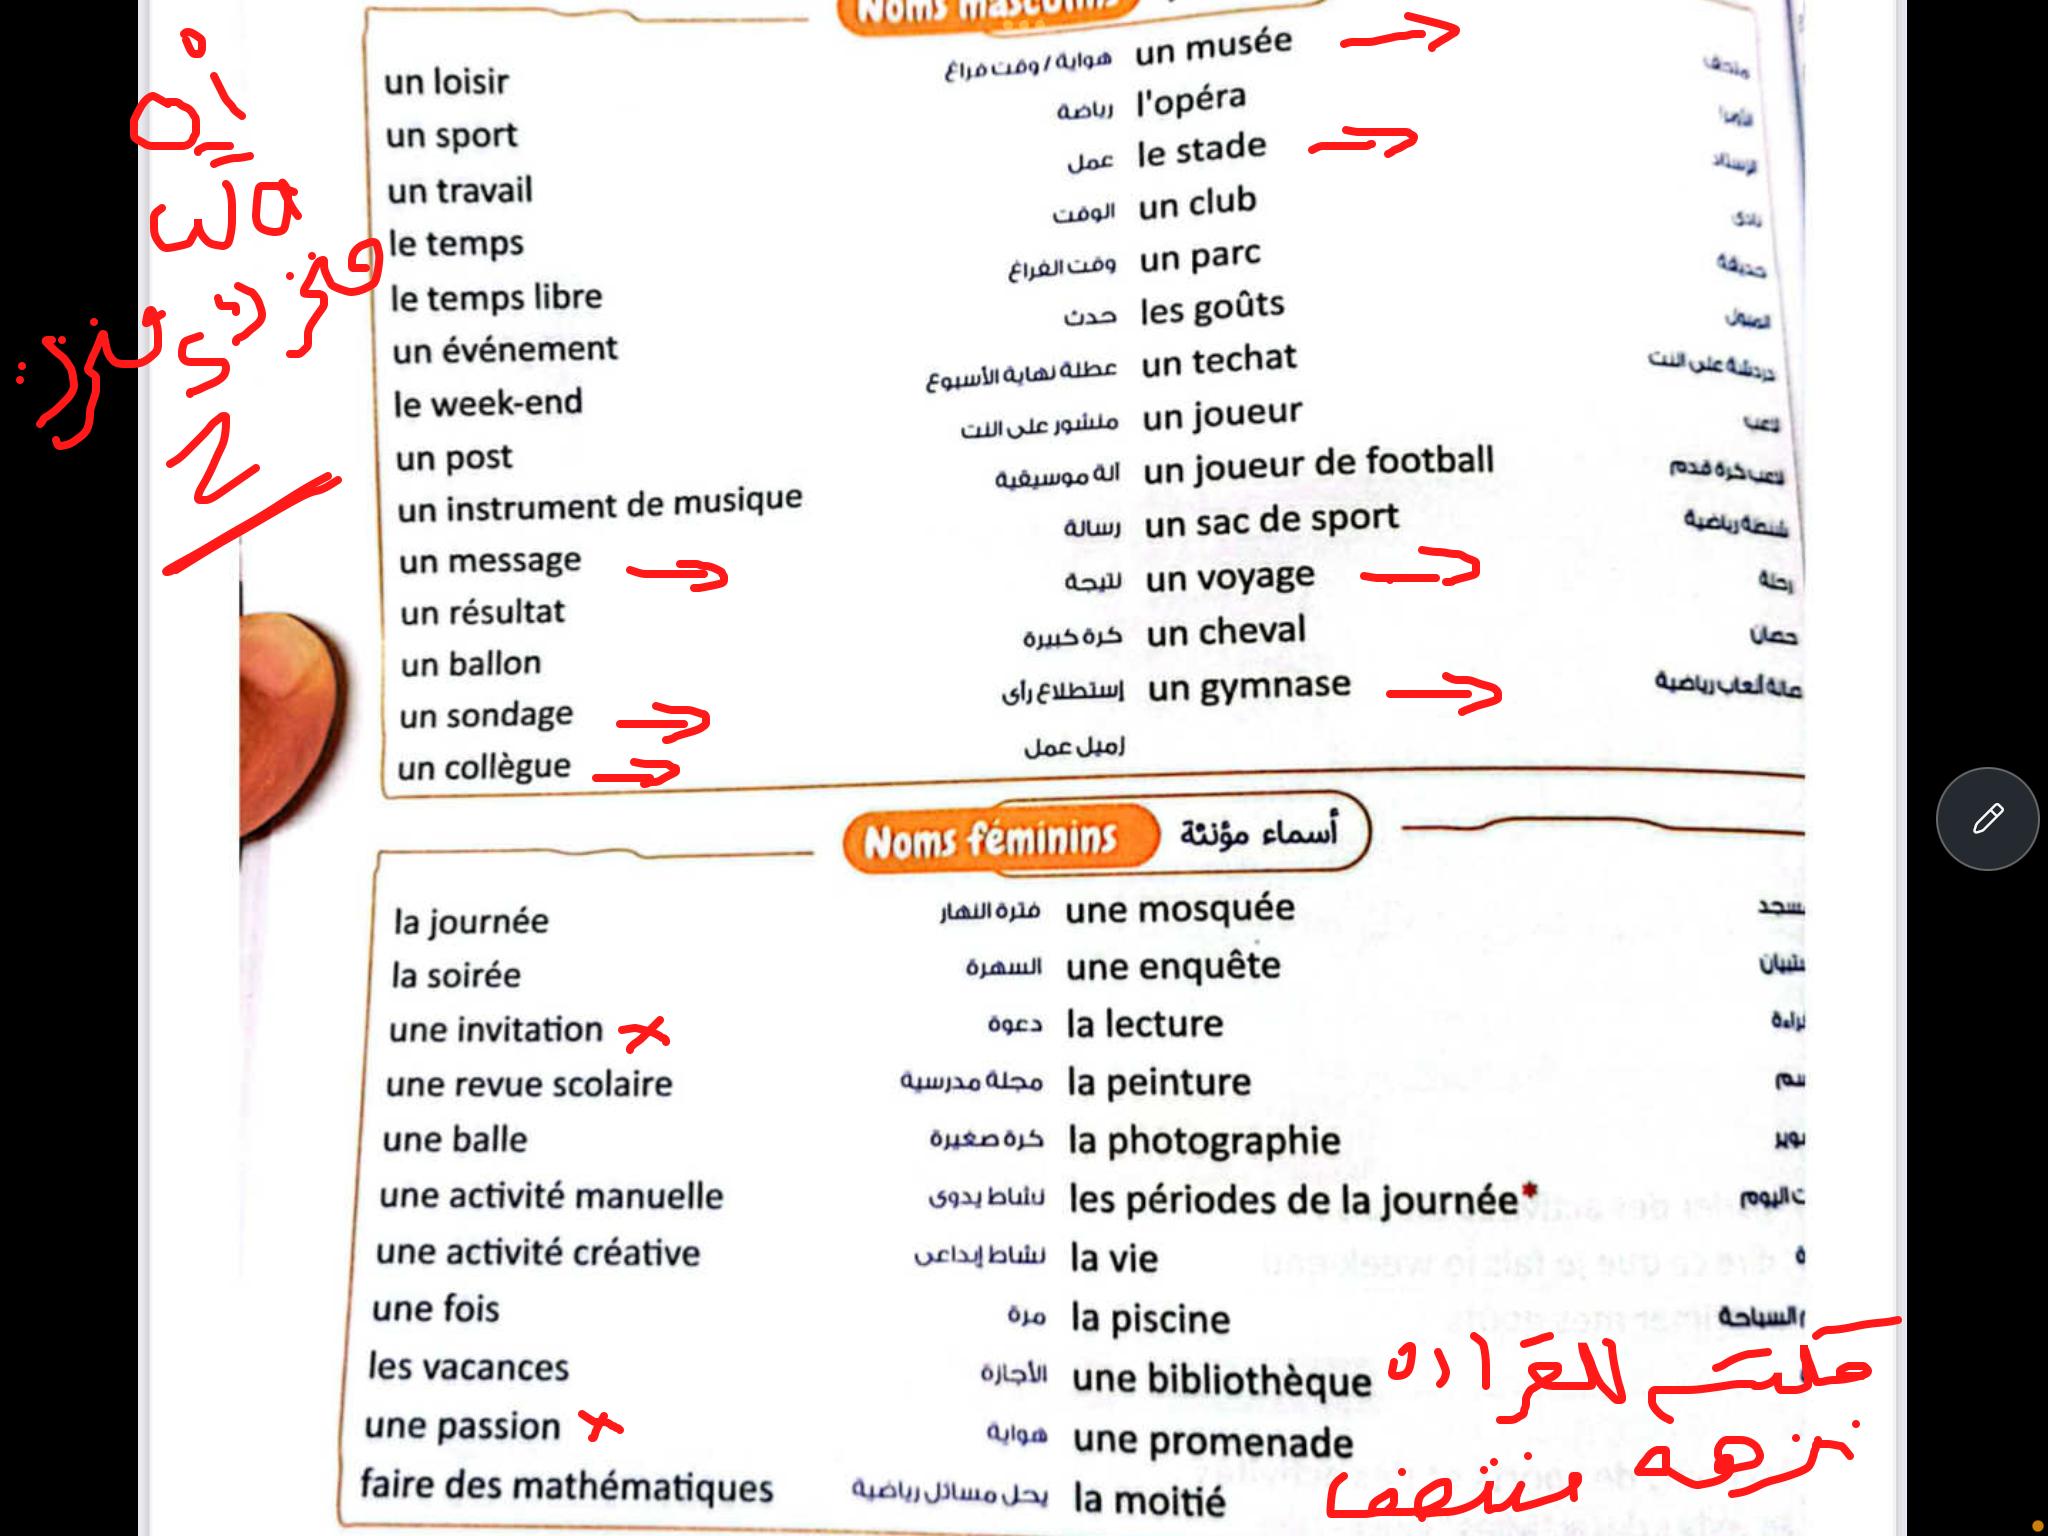 Noms masculins
un loisir
هواية / وقت فراغ
un sport
رياضة
un travail
عمل
le temps
الوقت
le temps libre
وقت الفراغ
un événement
حدث
le week-end
عطلة نهاية الأسبوع
un post
منشور على النت
un instrument de musique
آلة موسيقية
un message
رسالة
un résultat
نتيجة
un ballon
كرة كبيرة
un sondage
إستطلاع رأى
un collègue
زميل عمل
un musée
متحف
l'opéra
الأوبرا
le stade
الإستاد
un club
نادى
un parc
حديقة
les goûts
الميول
un techat
دردشة على النت
un joueur
لاعب
un joueur de football
لاعب كرة قدم
un sac de sport
شنطة رياضية
un voyage
رحلة
un cheval
حصان
un gymnase
صالة ألعاب رياضية
oi
wa
S
Z
Noms féminins
أسماء مؤنثة
la journée
فترة النهار
la soirée
السهرة
une invitation
دعوة
une revue scolaire
مجلة مدرسية
une balle
كرة صغيرة
une activité manuelle
نشاط يدوى
une activité créative
نشاط إبداعى
une fois
مرة
les vacances
الأجازة
une passion
هواية
faire des mathématiques
يحل مسائل رياضية
une mosquée
une enquête
la lecture
la peinture
la photographie
les périodes de la journée*
la vie
la piscine
السباحة
une bibliothèque
une promenade
نزهه
la moitié
منتصف